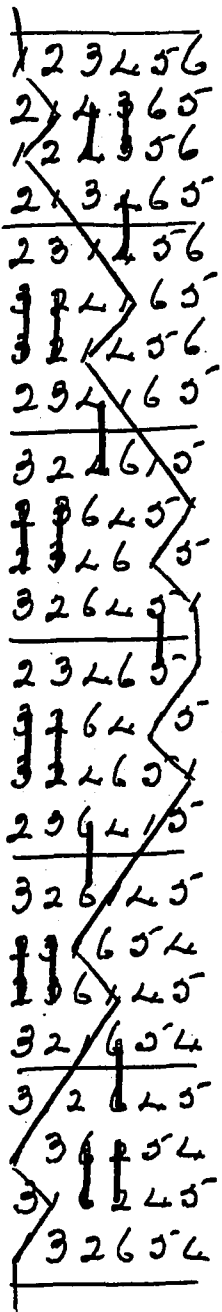 1 2 3 4 5 6
2 1 4 3 6 5
1 2 4 3 5 6
2 1 3 4 6 5
2 3 1 4 5 6
3 2 4 1 6 5
3 2 1 4 5 6
2 3 4 1 6 5
3 2 4 6 1 5
2 3 6 4 5 1
2 3 4 6 1 5
3 2 6 4 5 1
2 3 4 6 5 1
3 2 6 4 1 5
3 2 4 6 5 1
2 3 6 4 1 5
3 2 6 1 4 5
2 3 1 6 5 4
2 3 6 1 4 5
3 2 1 6 5 4
3 1 2 6 4 5
1 3 6 2 5 4
3 1 6 2 4 5
1 3 2 6 5 4